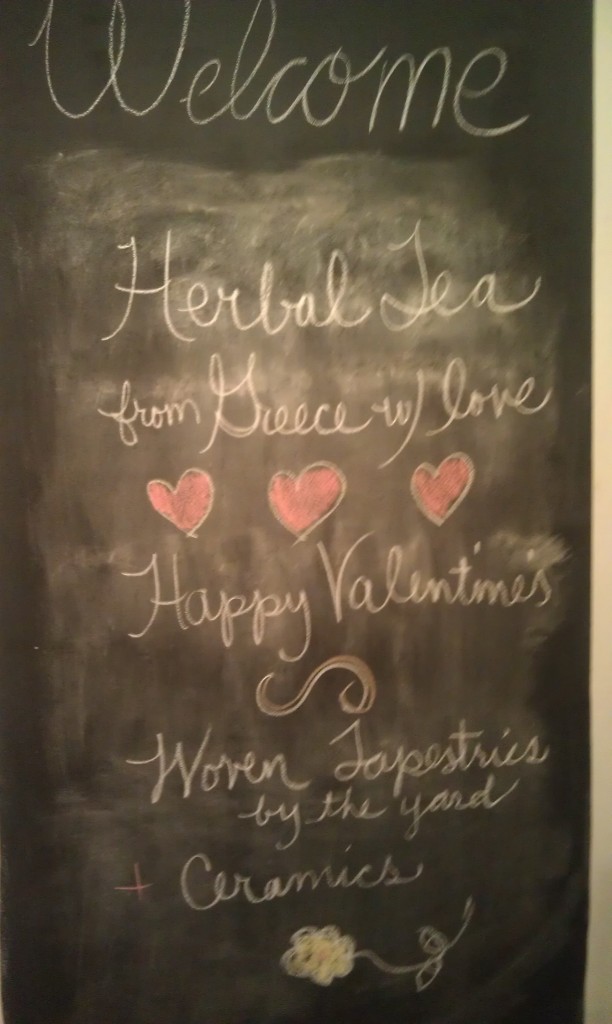 Welcome
Herbal Tea
from Greece w/ love
Happy Valentine's
Woven Tapestries
by the yard
+ Ceramics